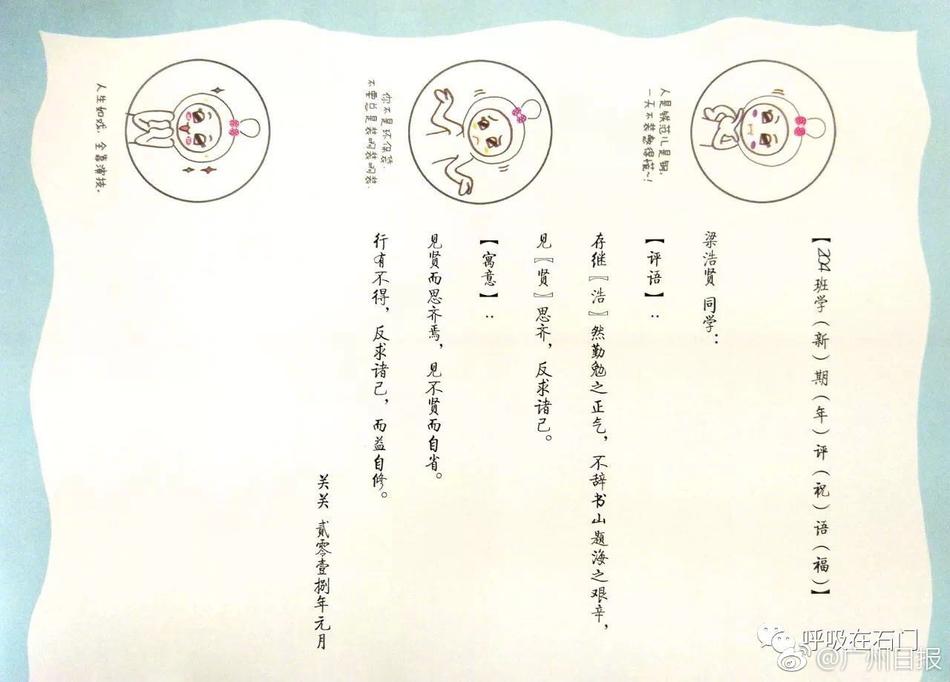 【204班学（新）期（年）评（祝）语（福）】
梁浩贤 同学：
【评语】：
存继〖浩〗然勤勉之正气，不辞书山题海之艰辛，
见〖贤〗思齐，反求诸己。
【寓意】：
见贤而思齐焉，见不贤而自省。
行有不得，反求诸己，而益自修。
关关 贰零壹捌年元月
人是铁范儿是钢，
一天不装憋得慌~！
你不是环保袋，
不要总是装的装的装
人生如戏，全靠演技。
呼吸在石门
@广州日报